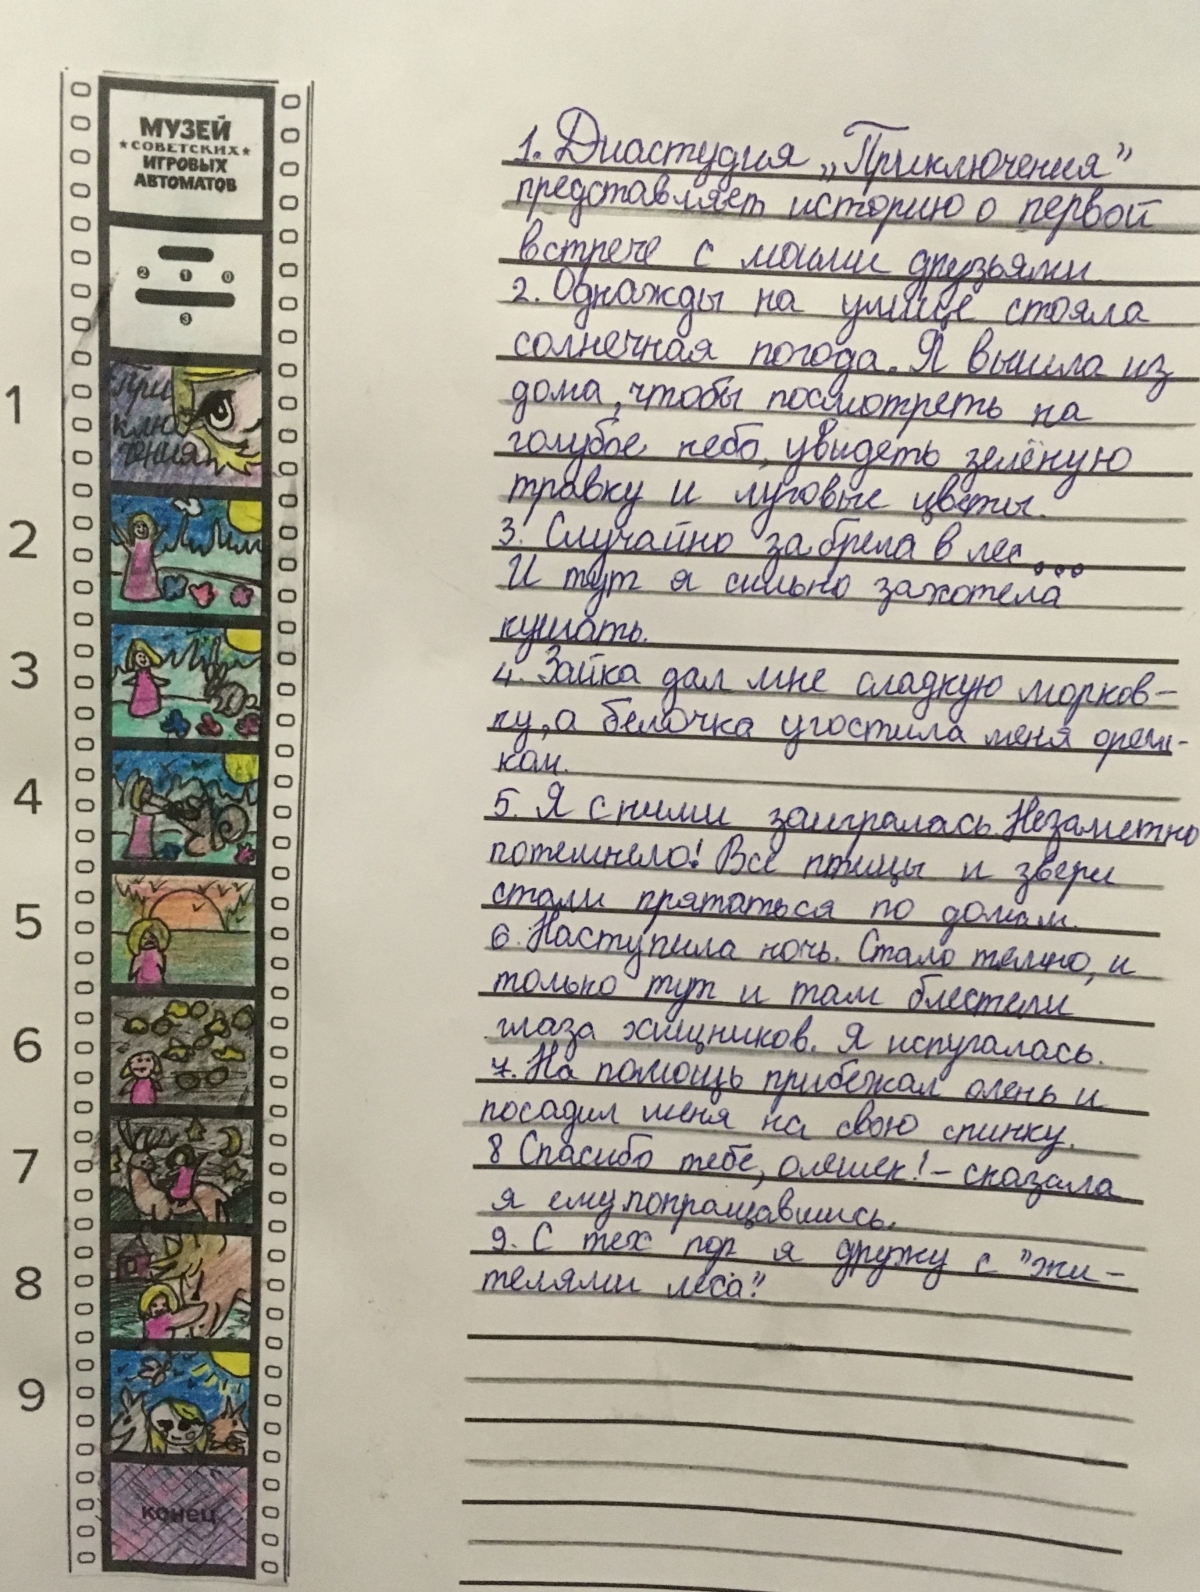 МУЗЕЙ
★СОВЕТСКИХ★
ИГРОВЫХ
АВТОМАТОВ
2 1 0
3
При
клю
чения
конец
1
2
3
4
5
6
7
8
9
1. Диастудия „Приключения”
представляет историю о первой
встрече с моими друзьями.
2. Однажды на улице стояла
солнечная погода. Я вышла из
дома, чтобы посмотреть на
голубое небо, увидеть зелёную
травку и луговые цветы.
3. Случайно забрела в лес...
И тут я сильно захотела
кушать.
4. Зайка дал мне сладкую морков-
ку, а белочка угостила меня ореш-
ком.
5. Я с ними заигралась. Незаметно
потемнело! Все птицы и звери
стали прятаться по домам.
6. Наступила ночь. Стало темно, и
только тут и там блестели
глаза хищников. Я испугалась.
7. На помощь прибежал олень и
посадил меня на свою спинку.
8 Спасибо тебе, олешек! - сказала
я ему попращавшись.
9. С тех пор я дружу с "жи-
телями леса"